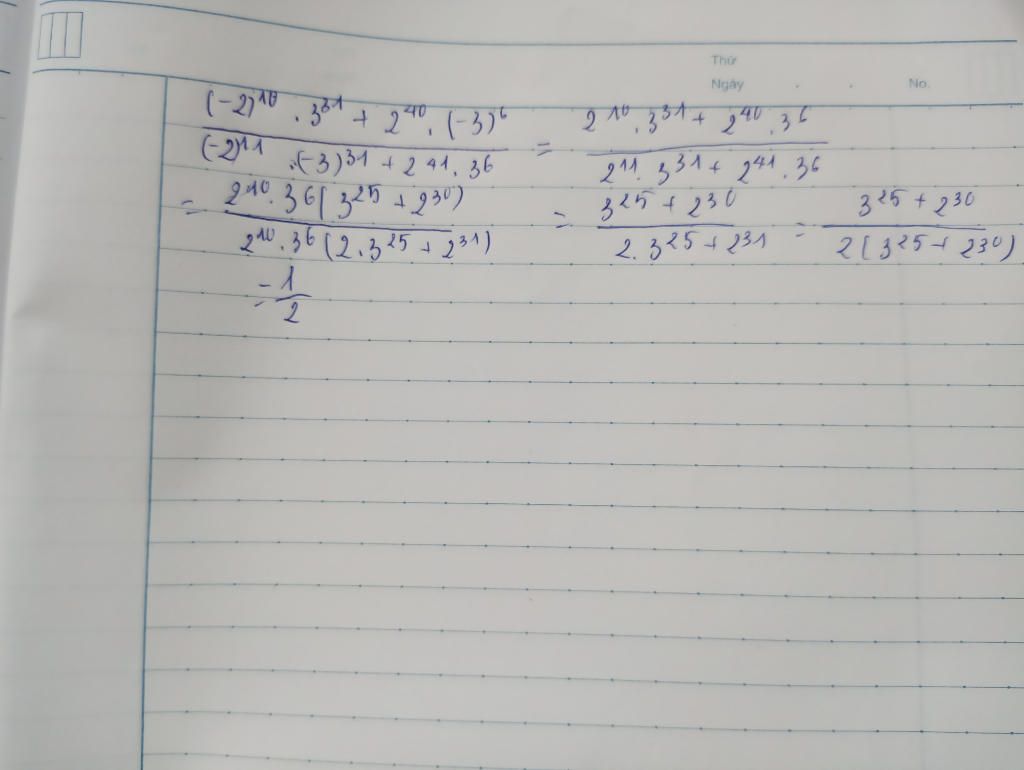 Thứ
Ngày . . No.
(-2)^10 . 3^31 + 2^40 . (-3)^6 / (-2)^11 . (-3)^31 + 2^41 . 3^6 = 2^10 . 3^31 + 2^40 . 3^6 / 2^11 . 3^31 + 2^41 . 3^6
= 2^10 . 3^6 ( 3^25 + 2^30) / 2^10 . 3^6 (2 . 3^25 + 2^31) = 3^25 + 2^30 / 2 . 3^25 + 2^31 = 3^25 + 2^30 / 2 ( 3^25 + 2^30)
= 1 / 2